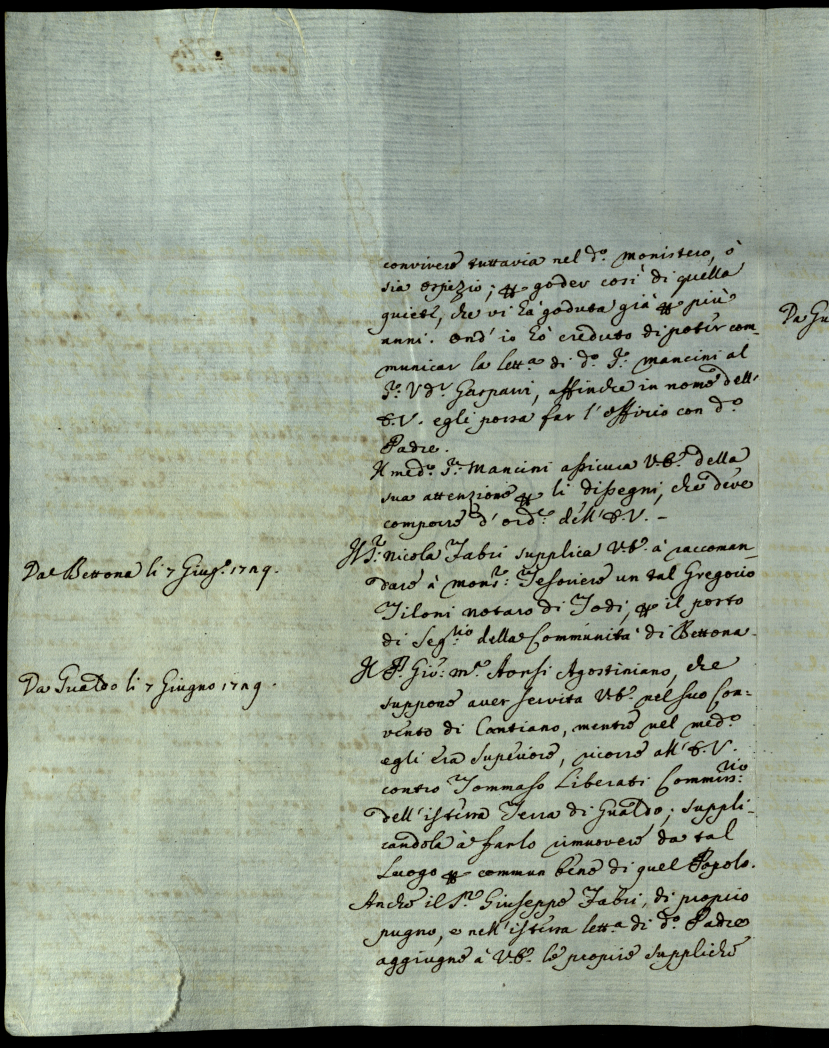 convivere tuttavia nel d.º monistero, ò
sia ospizio; p goder così di quella
quiete, che vi hà goduta già p più
anni. Ond' io hò creduto di poter com-
municar la lett.ª di d.º S.r Mancini al
S.r Ud.r Gaspari, affinche in nome dell'
E.V. egli possa far l'offizio con d.º
Padre.
Il med.º S.r Mancini assicura V.E. della
sua attenzione p li dissegni, che deve
comporre d'ord.e dell' E.V. -
Da Bettona li 7 Giug.º 1729.
Il S.r Nicola Fabri supplica V.E. à raccoman-
dare à Mons.r Tesoriere un tal Gregorio
Tiloni notaro di Todi, p il posto
di Seg.rio della Communità di Bettona.
Da Gualdo li 7 Giugno 1729.
Il P. Gio: M.ª Agostiniano, che
suppone aver servita V.E. nel suo Con-
vento di Cantiano, mentre nel med.º
egli era Superiore, ricorre all' E.V.
contro Tommaso Liberati Commiss.rio
dell'istessa Terra di Gualdo; suppli-
candola à farlo rimuovere da tal
Luogo p commun bene di quel Popolo.
Anche il S.r Giuseppe Fabri, di proprio
pugno, e nell'istessa lett.ª di d.º Padre
aggiugne à V.E. le proprie suppliche
Da Gu